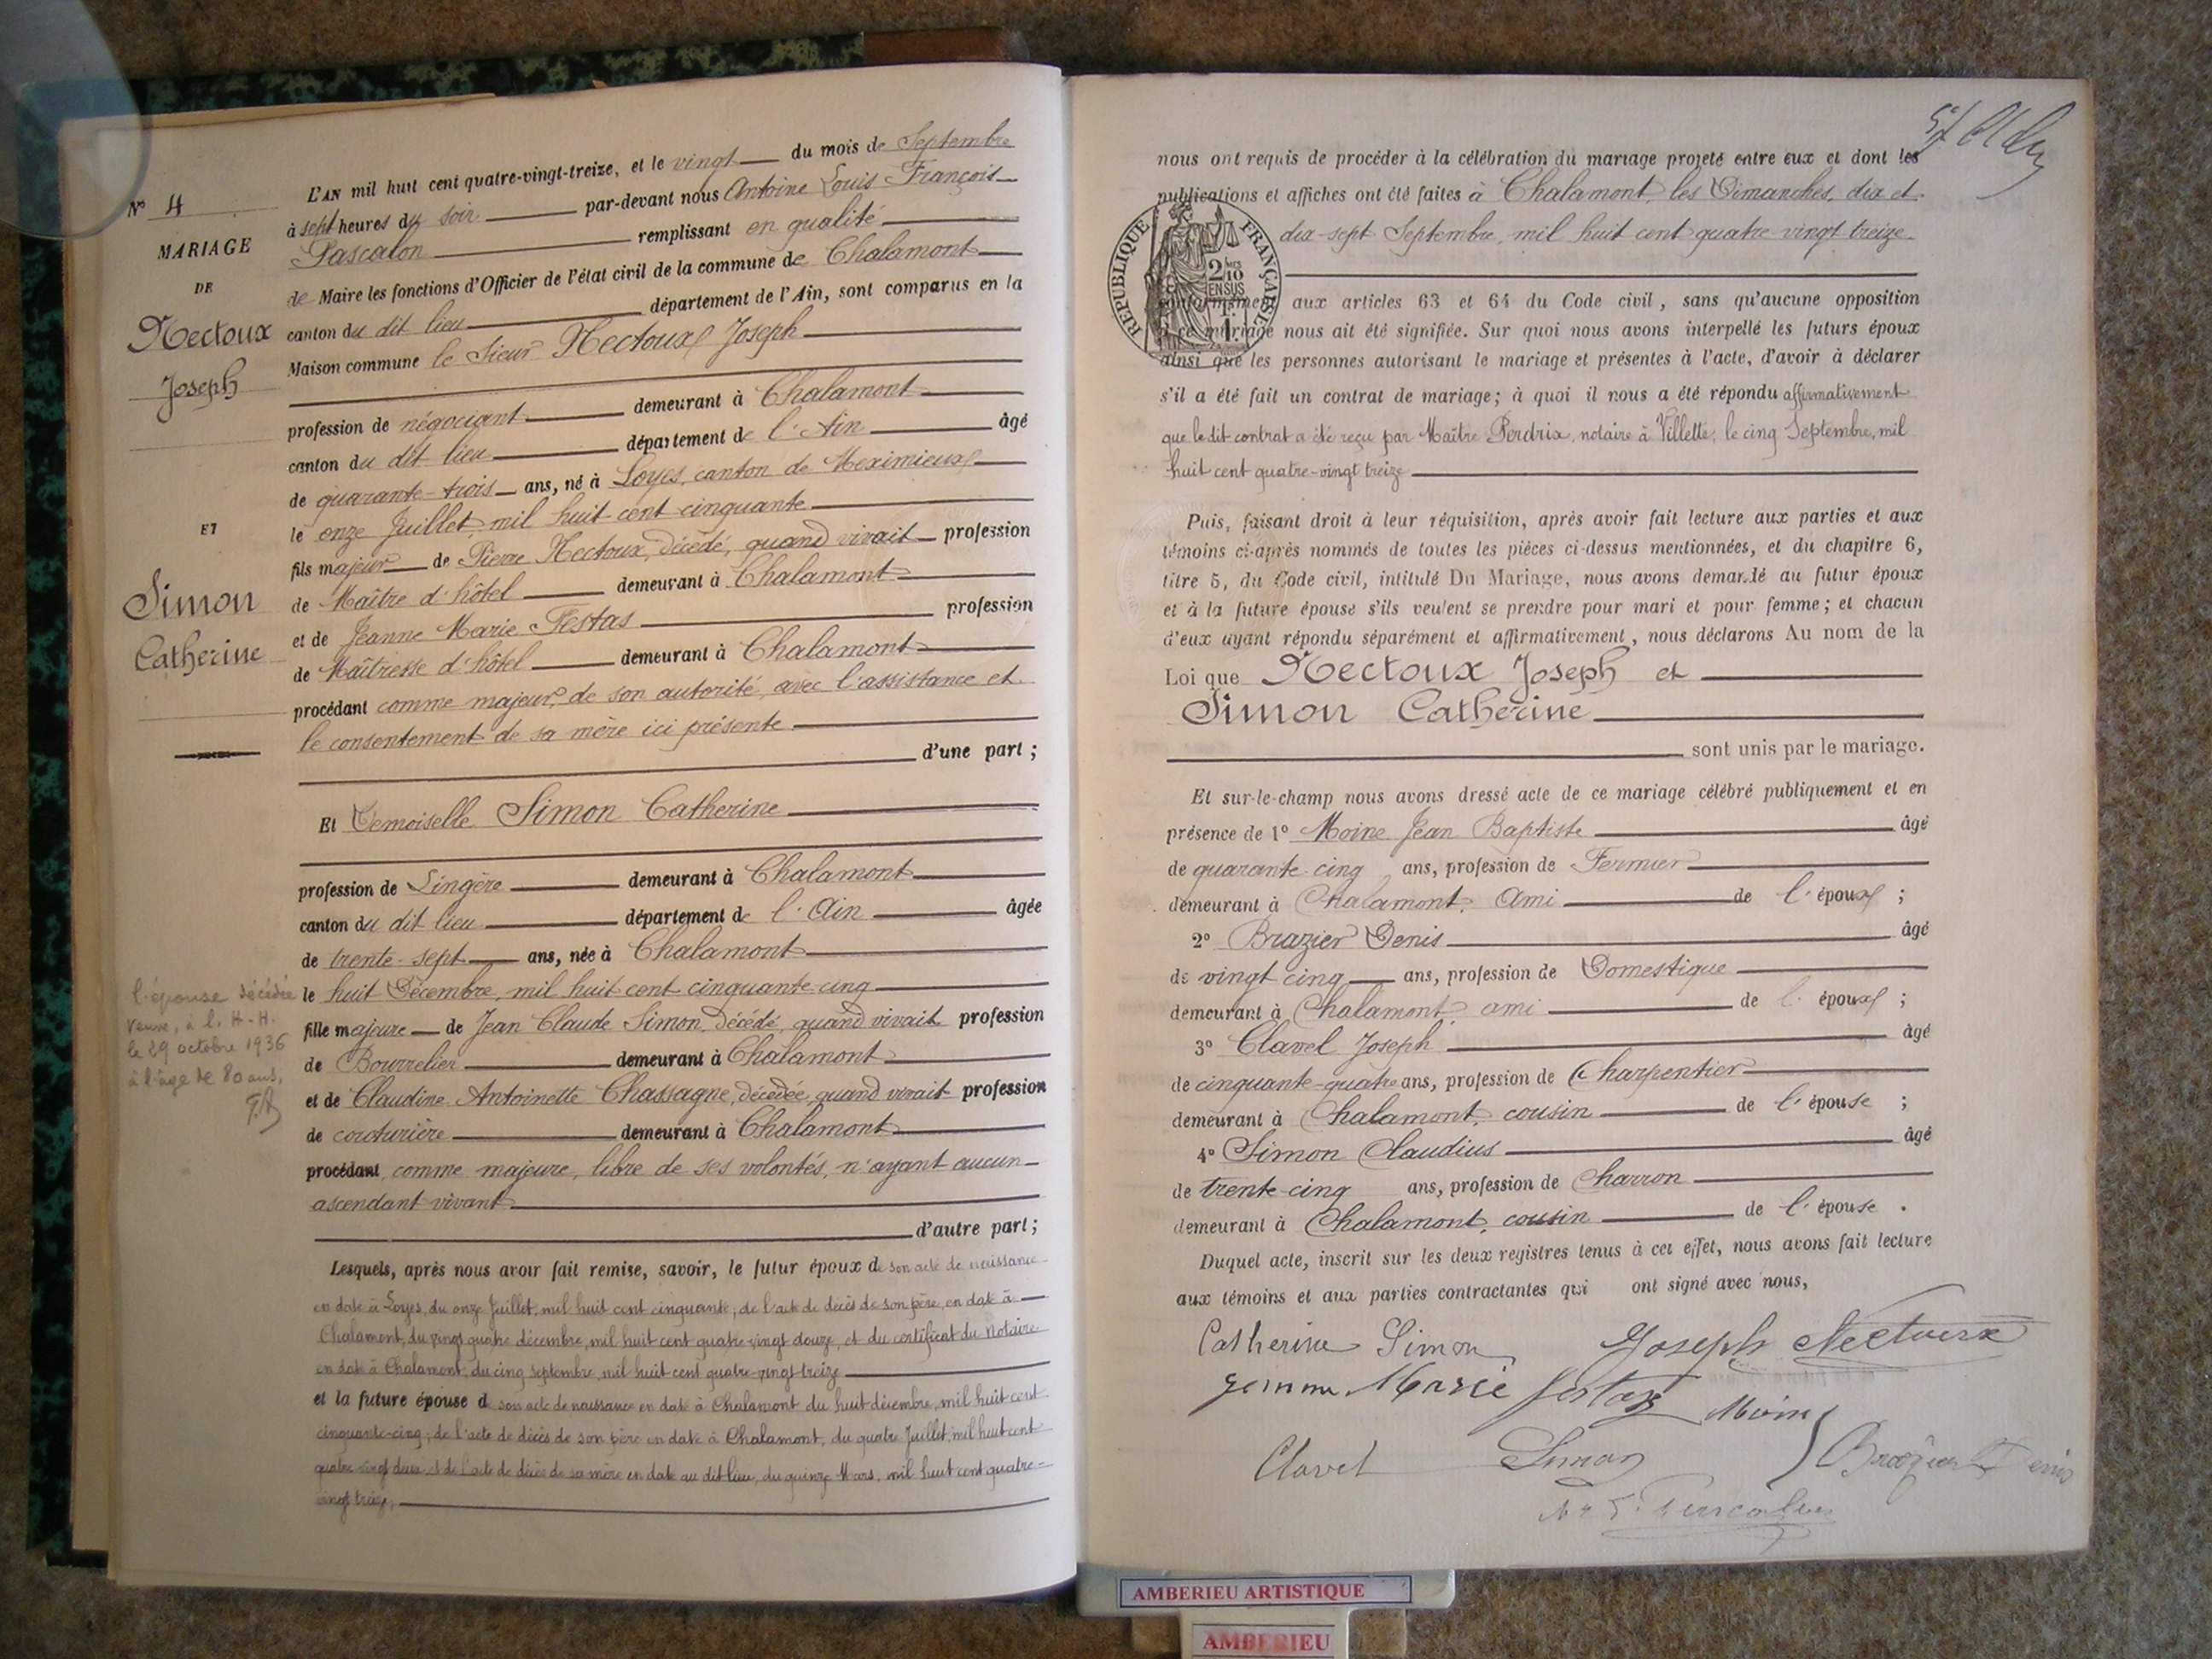 Nº 4
MARIAGE
DE
Nectoux
Joseph
ET
Simon
Catherine
l'épouse décédée
veuve, à l. H-H.
le 29 octobre 1936
à l'âge de 80 ans,
L'AN mil huit cent quatre-vingt-treize, et le vingt du mois de Septembre
à sept heures du soir par-devant nous Antoine Louis François
Pascalon remplissant en qualité
de Maire les fonctions d'Officier de l'état civil de la commune de Chalamont
canton du dit lieu département de l'Ain, sont comparus en la
Maison commune le Sieur Nectoux Joseph
profession de négociant demeurant à Chalamont
canton du dit lieu département de l'Ain âgé
de quarante-trois ans, né à Loyes, canton de Meximieux
le onze Juillet, mil huit cent cinquante
fils majeur de Pierre Nectoux, décédé, quand vivait profession
de Maître d'hôtel demeurant à Chalamont
et de Jeanne Marie Festas profession
de Maîtresse d'hôtel demeurant à Chalamont
procédant comme majeur, de son autorité, avec l'assistance et
le consentement de sa mère ici présente
d'une part ;
Et Demoiselle Simon Catherine
profession de Lingère demeurant à Chalamont
canton du dit lieu département de l'Ain âgée
de trente-sept ans, née à Chalamont
le huit Décembre, mil huit cent cinquante cinq
fille majeure de Jean Claude Simon, décédé, quand vivait profession
de Bourrelier demeurant à Chalamont
et de Claudine Antoinette Chassagne, décédée, quand vivait profession
de couturière demeurant à Chalamont
procédant comme majeure, libre de ses volontés, n'ayant aucun
ascendant vivant
d'autre part ;
Lesquels, après nous avoir fait remise, savoir, le futur époux de son acte de naissance
en date à Loyes, du onze Juillet, mil huit cent cinquante ; de l'acte de décès de son père, en date à
Chalamont, du vingt quatre décembre, mil huit cent quatre vingt douze, et du certificat du Notaire
en date à Chalamont, du cinq Septembre, mil huit cent quatre-vingt treize
et la future épouse de son acte de naissance en date à Chalamont du huit décembre, mil huit cent
cinquante-cinq ; de l'acte de décès de son père en date à Chalamont, du quatre Juillet, mil huit cent
quatre vingt deux et de l'acte de décès de sa mère en date au dit lieu, du quinze Mars, mil huit cent quatre-
vingt treize,
nous ont requis de procéder à la célébration du mariage projeté entre eux et dont les
publications et affiches ont été faites à Chalamont, les Dimanches, dix et
dix-sept Septembre, mil huit cent quatre vingt treize
REPUBLIQUE FRANÇAISE
2/10
EN SUS
conformément aux articles 63 et 64 du Code civil, sans qu'aucune opposition
à ce mariage nous ait été signifiée. Sur quoi nous avons interpellé les futurs époux
ainsi que les personnes autorisant le mariage et présentes à l'acte, d'avoir à déclarer
s'il a été fait un contrat de mariage; à quoi il nous a été répondu affirmativement
que le dit contrat a été reçu par Maître Perdrix, notaire à Villette, le cinq Septembre, mil
huit cent quatre-vingt treize
Puis, faisant droit à leur réquisition, après avoir fait lecture aux parties et aux
témoins ci-après nommés de toutes les pièces ci-dessus mentionnées, et du chapitre 6,
titre 5, du Code civil, intitulé Du Mariage, nous avons demandé au futur époux
et à la future épouse s'ils veulent se prendre pour mari et pour femme ; et chacun
d'eux ayant répondu séparément et affirmativement, nous déclarons Au nom de la
Loi que Nectoux Joseph et
Simon Catherine
sont unis par le mariage.
Et sur-le-champ nous avons dressé acte de ce mariage célébré publiquement et en
présence de 1º Moine Jean Baptiste âgé
de quarante cinq ans, profession de Fermier
demeurant à Chalamont, Ami de l'époux ;
2º Brazier Denis âgé
de vingt cinq ans, profession de Domestique
demeurant à Chalamont, ami de l'époux ;
3º Clavel Joseph âgé
de cinquante-quatre ans, profession de Charpentier
demeurant à Chalamont, cousin de l'épouse ;
4º Simon Claudius âgé
de trente-cinq ans, profession de Charron
demeurant à Chalamont, cousin de l'épouse .
Duquel acte, inscrit sur les deux registres tenus à cet effet, nous avons fait lecture
aux témoins et aux parties contractantes qui ont signé avec nous,
Catherine Simon Joseph Nectoux
Marie Festaz Moine
Clavel Simon Brazier Denis
AMBERIEU ARTISTIQUE
AMBERIEU